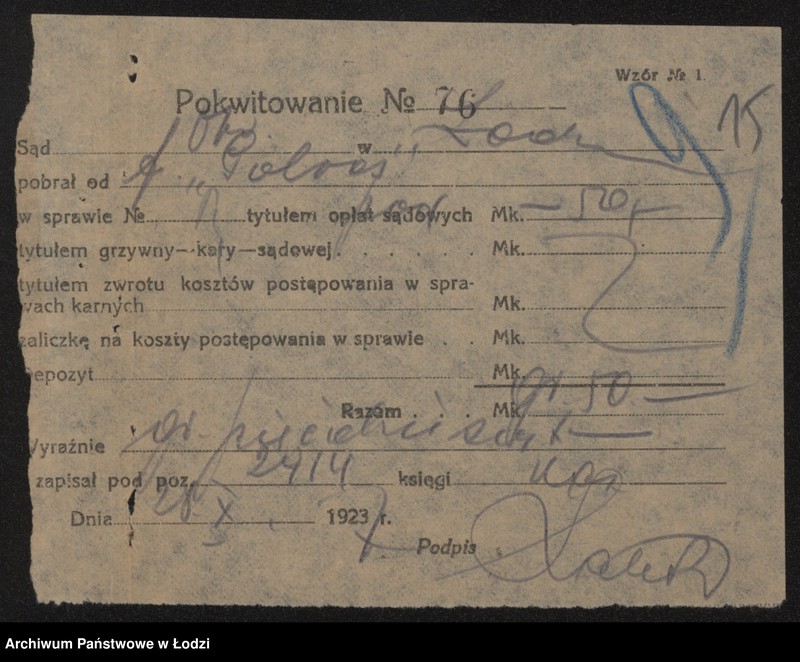 Wzór № 1.
15
Pokwitowanie № 76
Sąd Okr. w Łodzi
pobrał od f. „Polros"
w sprawie № tytułem opłat sądowych Mk. — 50,—
tytułem grzywny—kary—sądowej . . . . . . Mk.
tytułem zwrotu kosztów postępowania w spra-
wach karnych Mk.
zaliczkę na koszty postępowania w sprawie . . Mk.
Depozyt Mk.
Razem . . . Mk. gr. 50 —
Wyraźnie gr. pięćdziesiąt —
zapisał pod poz. 2414 księgi
Dnia 28 X 1923 r.
Podpis
Archiwum Państwowe w Łodzi